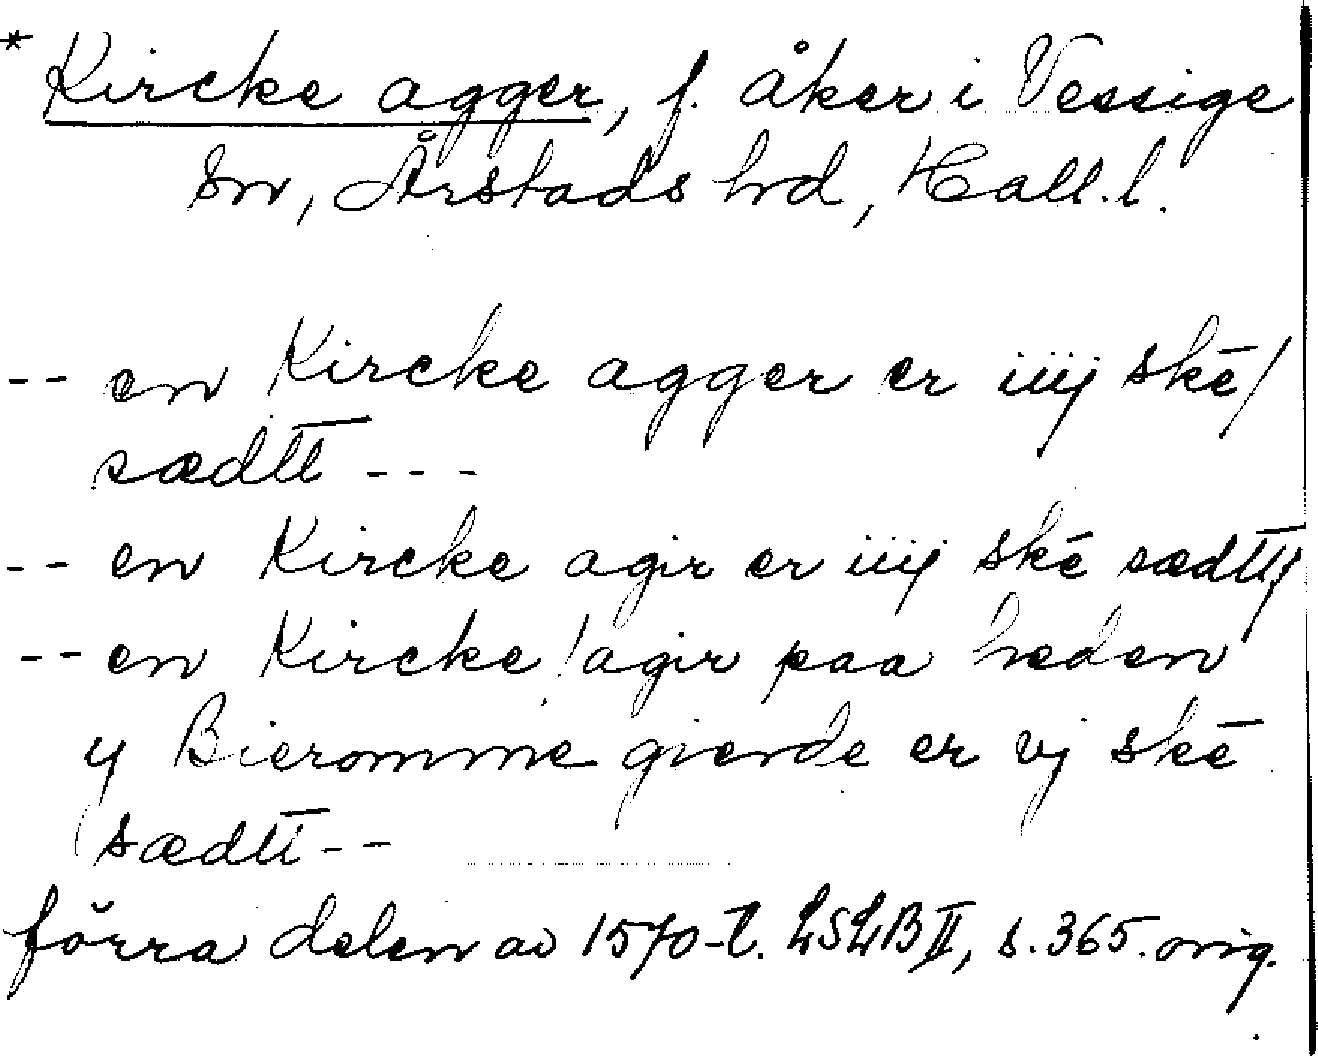 * Kircke agger, f. åker i Vessige
sn, Årstads hd, Hall. l.
-- en Kircke agger er iiij skē/
sædtt ---
-- en Kircke agir er iiij skē sædtt/
-- en Kircke! agir paa heden
y Bieromme gierde er vj skē
sædtt --
förra delen av 1570-t. LSLB II, s. 365. orig.